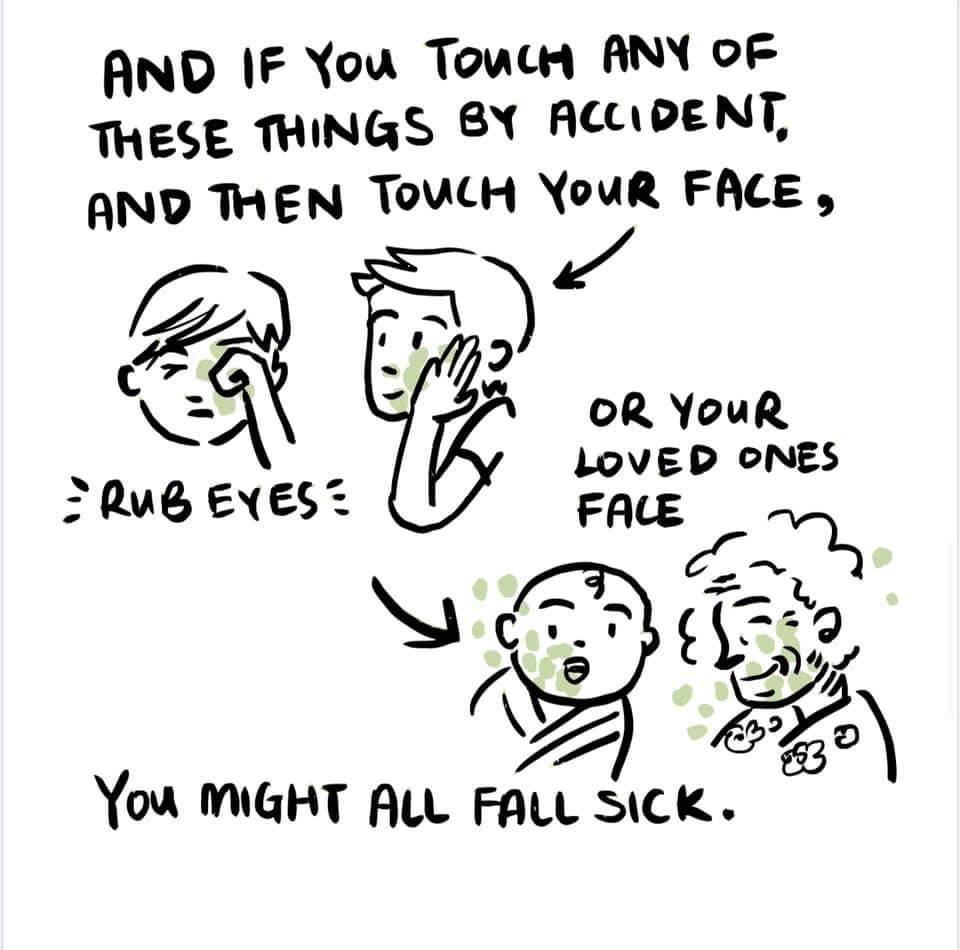 AND IF YOU TOUCH ANY OF
THESE THINGS BY ACCIDENT,
AND THEN TOUCH YOUR FACE,
RUB EYES
OR YOUR
LOVED ONES
FACE
YOU MIGHT ALL FALL SICK.